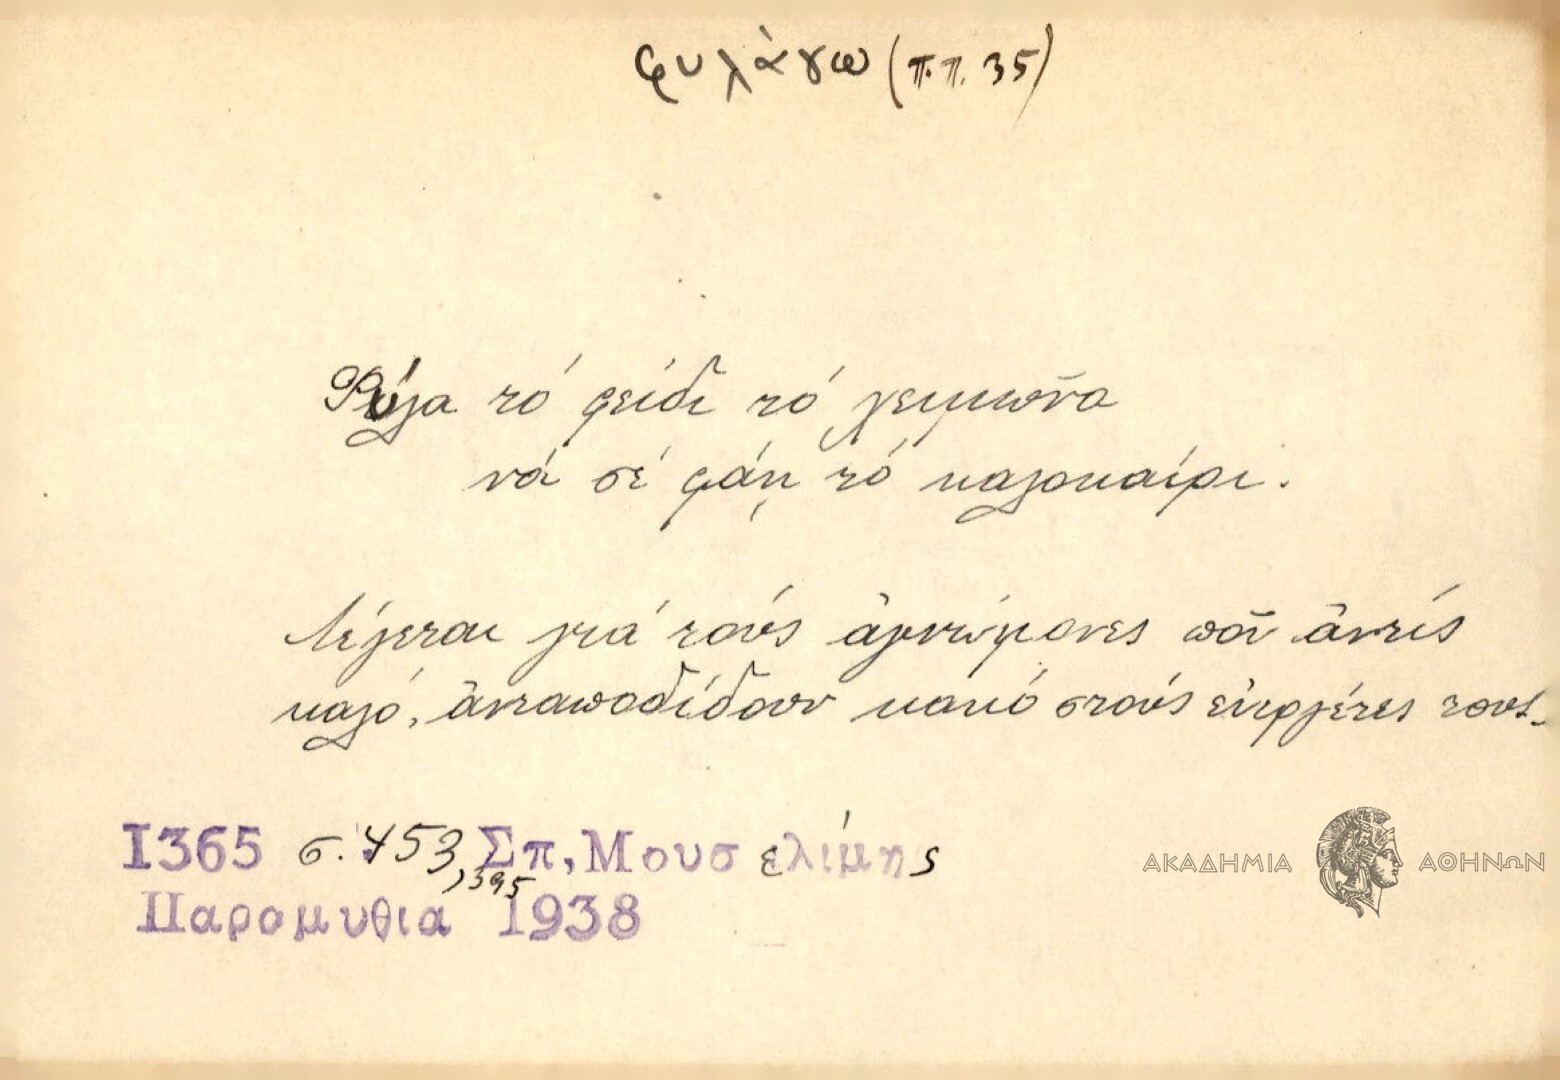 φυλάγω (π.π. 35)
Φύλα τό φείδι τό χειμῶνα
νά σέ φάῃ τό καλοκαίρι.
Λέγεται γιά τούς ἀγνώμονες ποῦ ἀντίς
καλό, ἀνταποδίδουν κακό στούς εὐεργέτες τους.
1365 σ. 453, Σπ, Μουσελίμης
, 395
Παραμυθια 1938
ΑΚΑΔΗΜΙΑ ΑΘΗΝΩΝ